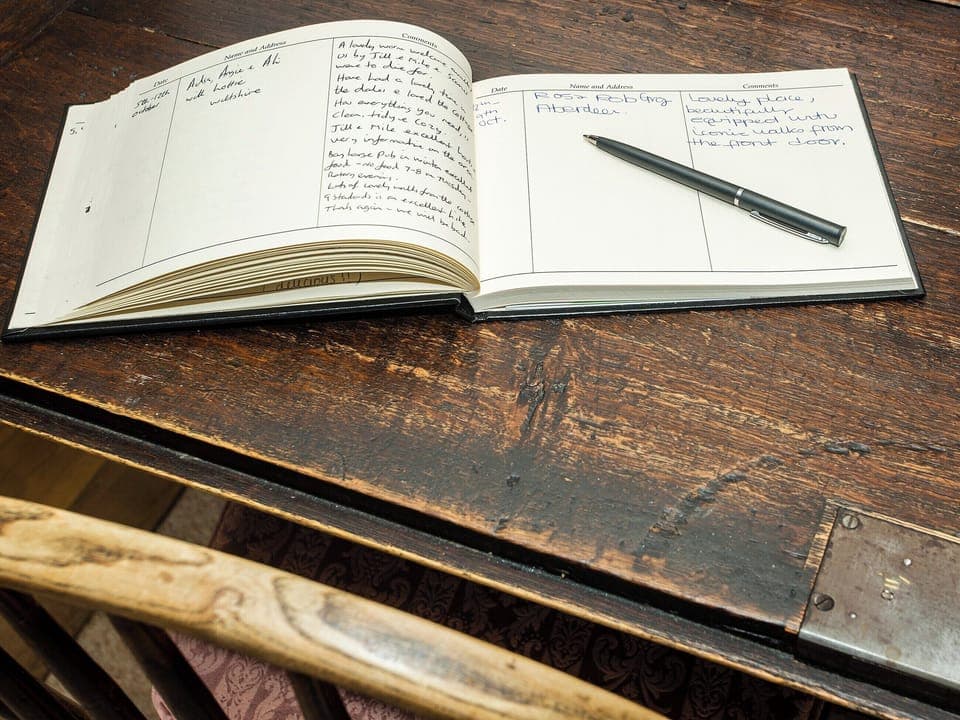 Date Name and Address Comments
5th-12th
October
Ada, Angie & Ali
with Lottie
Wiltshire
A lovely warm welcome
us by Jill & Mike & scones
were to die for.
Have had a lovely time,
the dales & loved the
Has everything you need,
clean, tidy & cozy.
Jill & Mike excellent
very informative on the
Bay horse Pub in winton excellent
food - no food 7-8 on Tuesday -
Rotary evening.
Lots of lovely walks from the cottage
9 standards is an excellent hike
Thanks again - we will be back.
Date Name and Address Comments
9th
Oct.
Ross Rob Gray
Aberdeen.
Lovely place,
beautifully
equipped with
iconic walks from
the front door.